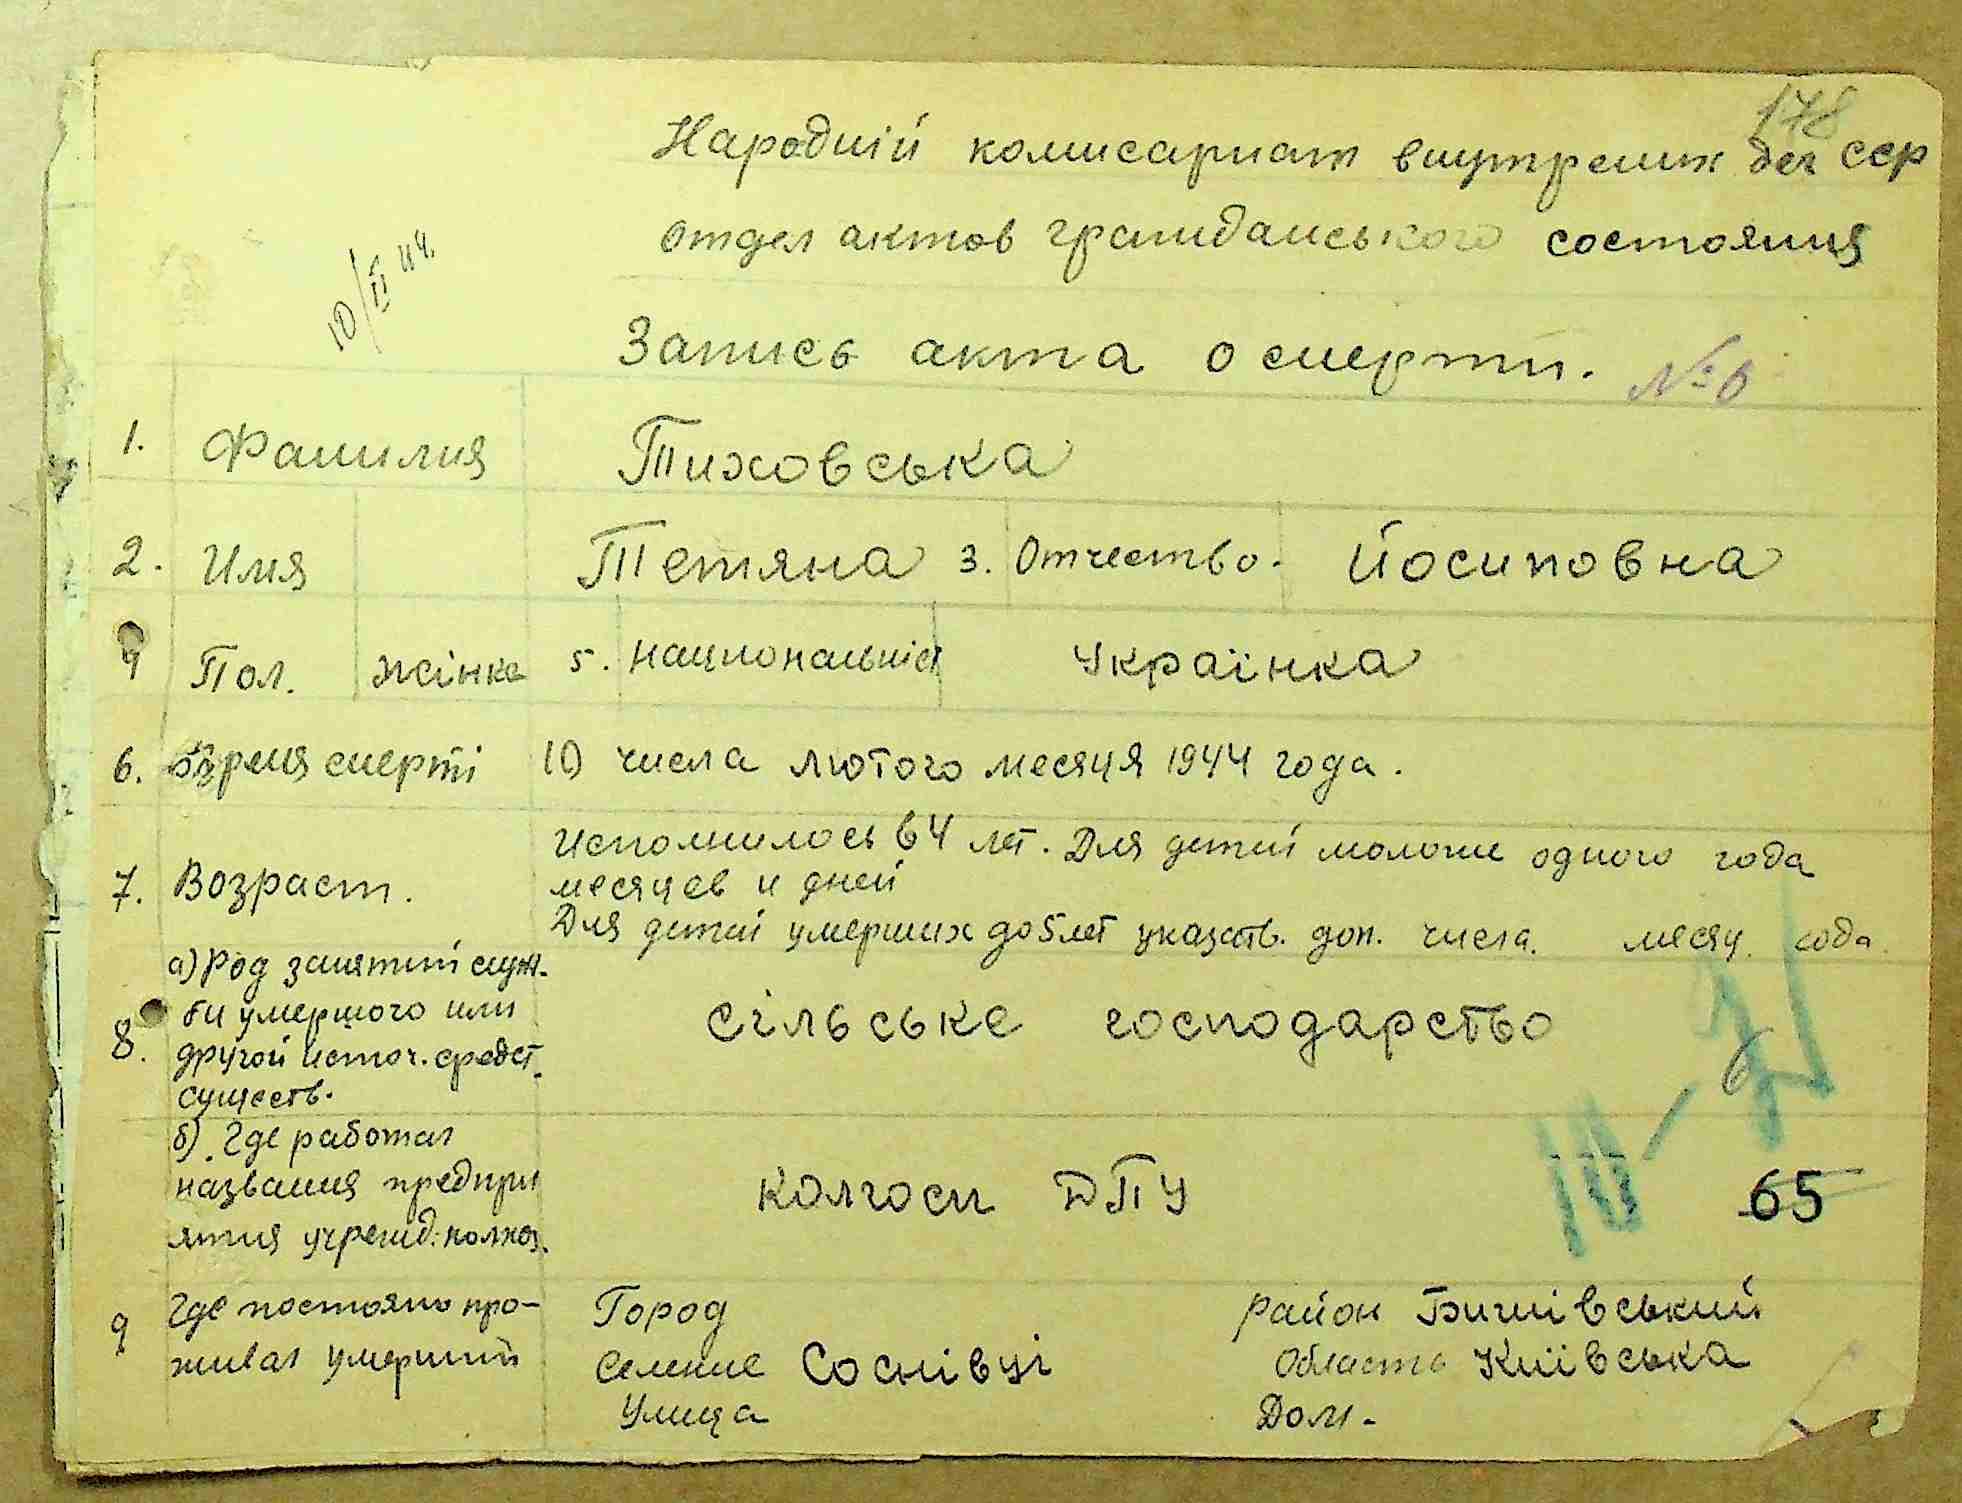 178
Народній комисариат внутрених дел ССР
отдел актов гражданського состояния
10/II 44.
Запись акта о смерти. № 6
1. Фамилия Тиховська
2. Имя Тетяна 3. Отчество. Йосиповна
4 Пол. жінка 5. национальніст Українка
6. Время смерті 10 числа лютого месяця 1944 года.
7. Возраст. Исполнилось 64 лет. Для детей моложе одного года
месяцев и дней
Для детей умерших до 5 лет указать. доп. числа. месяц. года
8. а) Род занятий служ-
би умершого или
другой источ. средст.
существ.
сільське господарство
б). Где работал
названия предпри
ятия учрежд. колхоз.
колгосп ДПУ
III-
65
9 Где постояно про-
живал умерший
Город район Бишівський
Селение Соснівці Область Київська
Улица Дом-